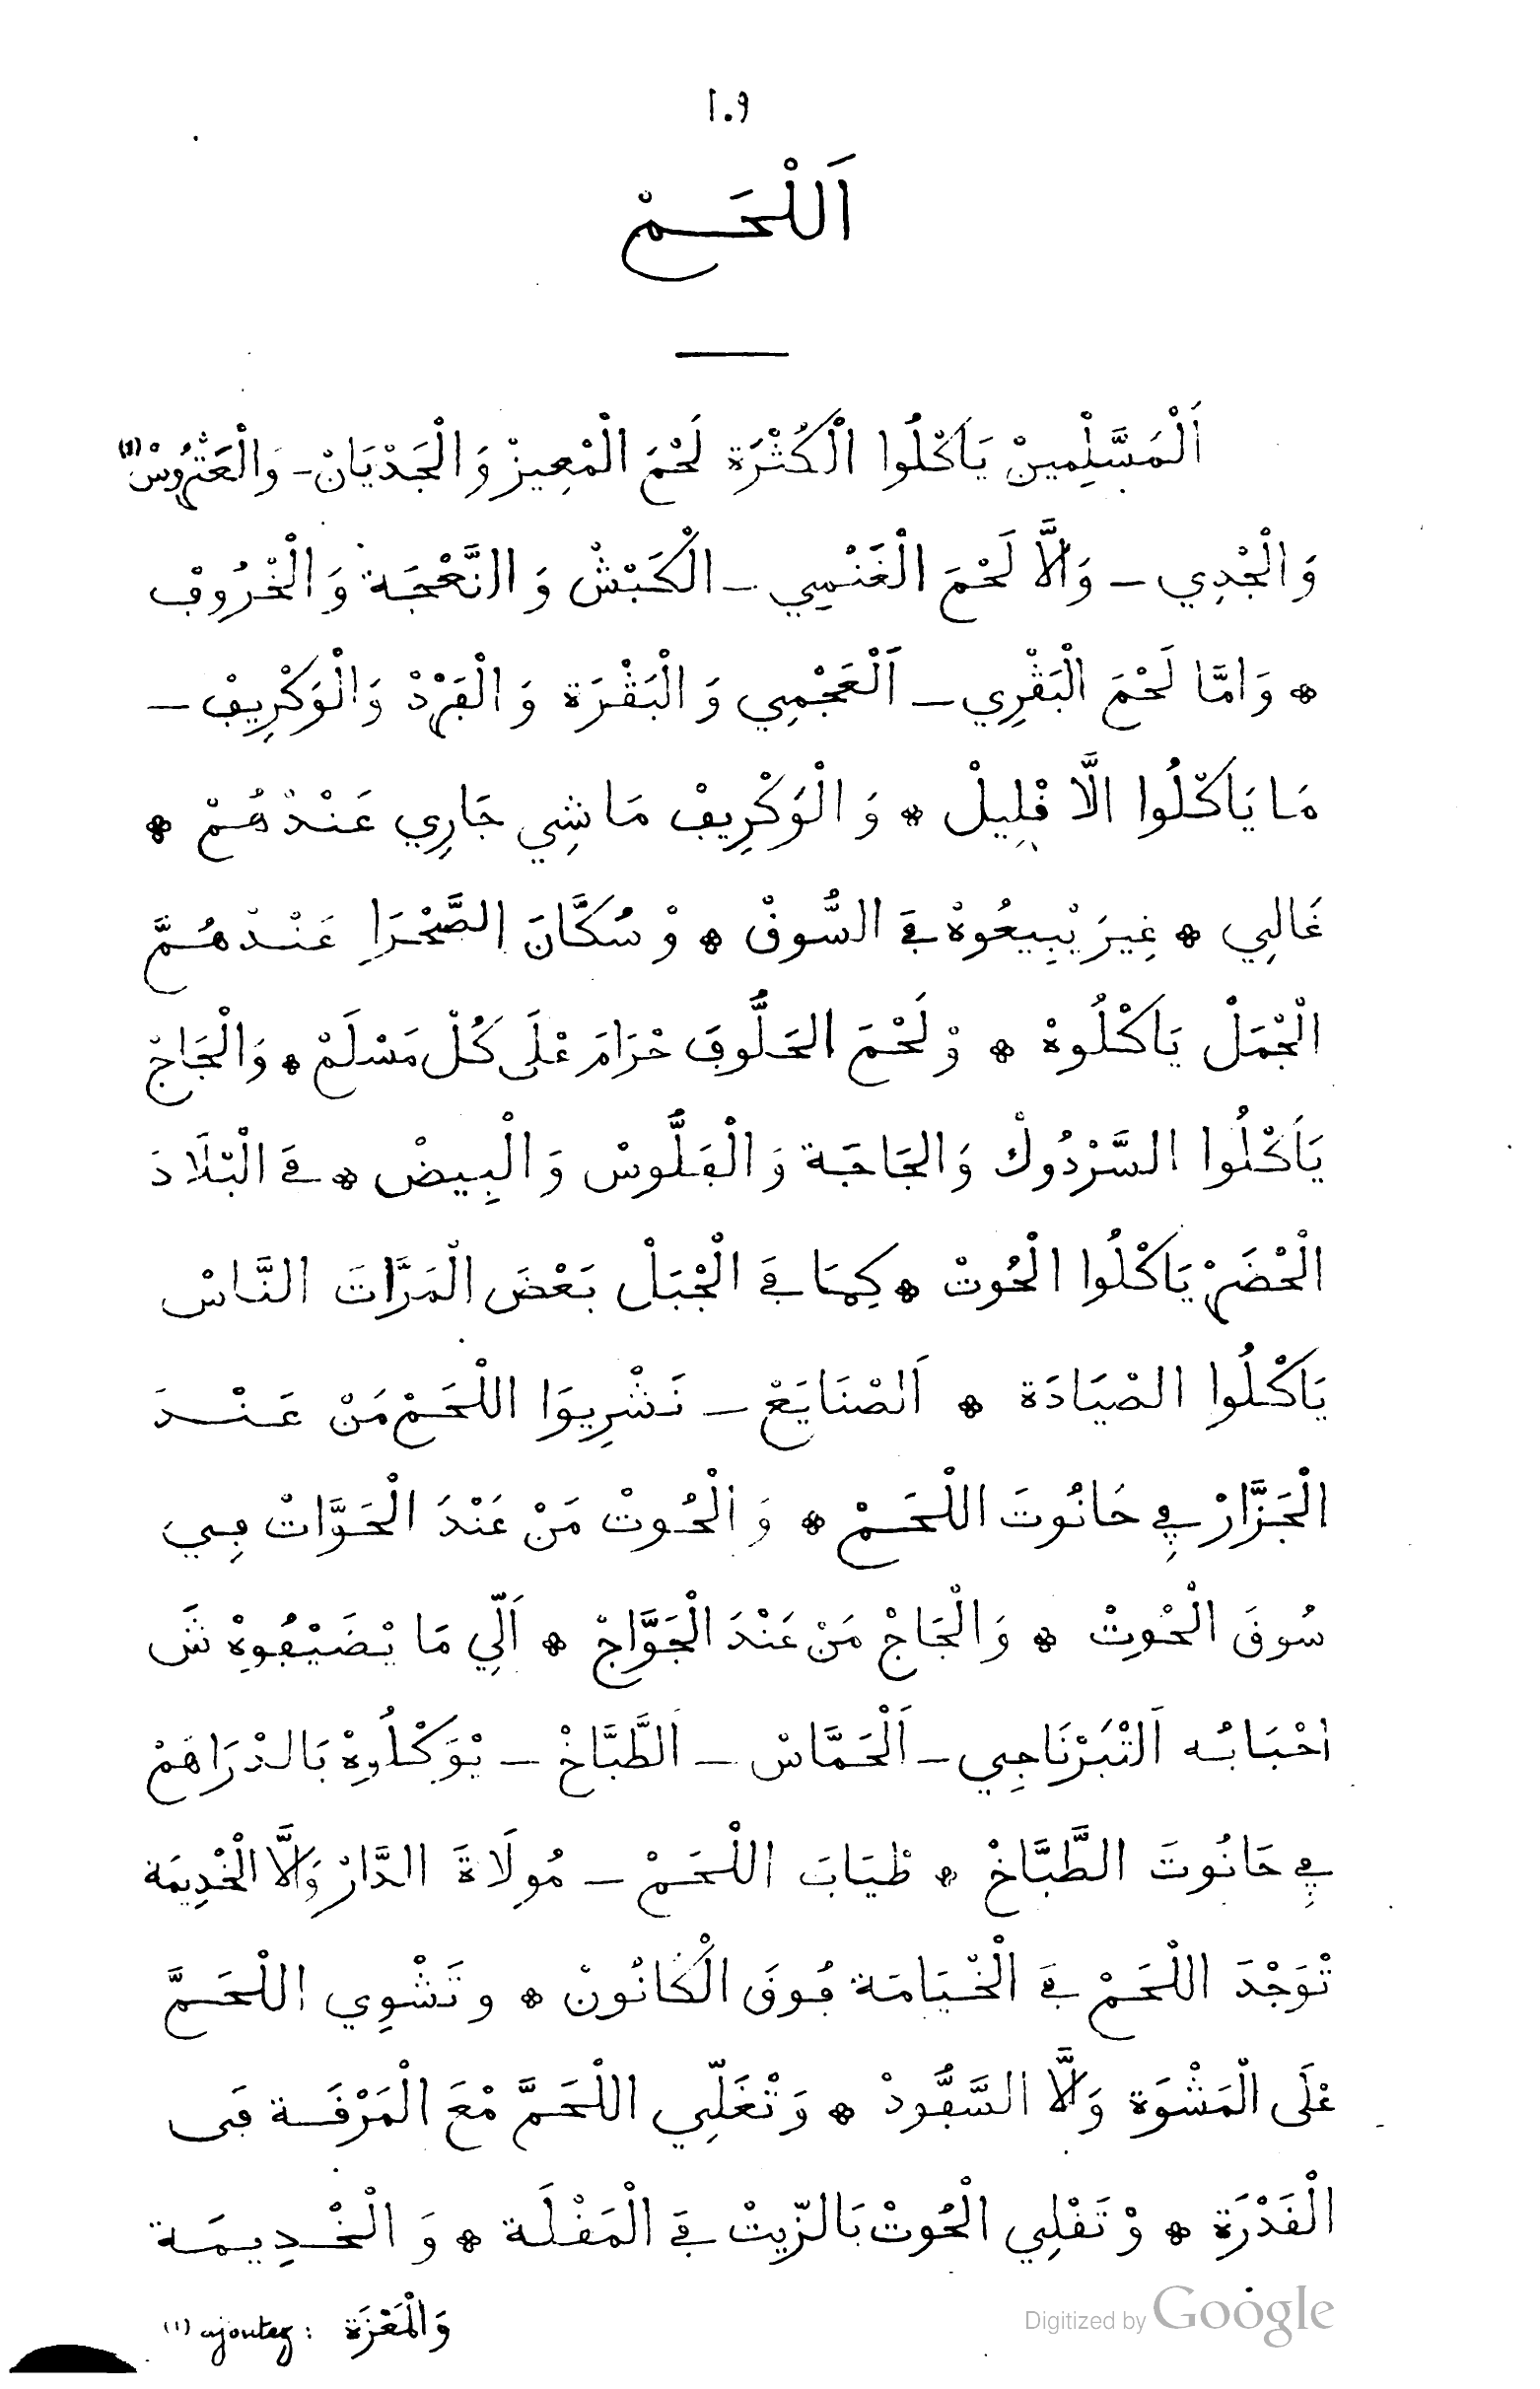 ١٠٩
اَللْحَمْ
اَلْمَسَّلْمِينْ يَاكْلُوا الْكُثْرَة لَحْمَ الْمْعِيزْ وَالْجَدْيَانْ - وَالْعَتْرُوسْ (١)
وَالْجْدِي - وَلَّا لَحْمَ الْغَنْمِي - الْكَبْشْ وَ النَّعْجَة وَ الْخْرُوڢْ
* وَامَّا لَحْمَ الْبَڧْرِي - اَلْعَجْمِي وَ الْبَڧْرَة وَ الْڢَرْدْ وَالْوَكْرِيڢْ -
مَا يَاكْلُوا الَّا ڧْلِيلْ * وَ الْوَكْرِيڢْ مَاشِي جَارِي عَنْدْهُمْ *
غَالِي * غِيرَ يْبِيعُوهْ ڢَ السُّوڧْ * وْ سُكَّانَ الصَّحْرَا عَنْدْهُمَّ
الْجْمَلْ يَاكْلُوهْ * وْ لَحْمَ الحَلُّوڢَ حْرَامَ عْلَى كُلْ مَسْلَمْ * وَالْجَاجْ
يَاكْلُوا السَّرْدُوكْ وَالجَاجَة وَ الْڢَلُّوسْ وَ الْبِيضْ * ڢَ الْبْلَادَ
الْحْضَرْ يَاكْلُوا الْحُوتْ * كِمَا ڢَ الْجْبَلْ بَعْضَ الْمَرَّاتَ النَّاسْ
يَاكْلُوا الصْيَادَة * اَلصْنَايَعْ - نَشْرِيوَا اللْحَمْ مَنْ عَنْدَ
الْجَزَّارْ ڢِي حَانُوتَ اللْحَمْ * وَ الْحُوتْ مَنْ عَنْدَ الْحَوَّاتْ ڢِي
سُوڧَ الْحُوتْ * وَالْجَاجْ مَنْ عَنْدَ الْجَوَّاجْ * اَلِّي مَا يْضَيْڢُوهْ شَ
احْبَابُه اَلْتْبَرْنَاجِي - اَلْحَمَّاسْ - اَلطَّبَّاخْ - يْوَكْلُوهْ بَالدْرَاهَمْ
ڢِي حَانُوتَ الطَّبَّاخْ * طْيَابَ اللْحَمْ - مُولَاةَ الدَّارْ وَلَّا الْخْدِيمَة
تْوَجْدَ اللْحَمْ ڢَ الْخْيَامَة ڢُوڧَ الْكَانُونْ * وتَشْوِي اللْحَمَّ
عْلَى الْمَشْوَة وَلَّا السَّڢُّودْ * وَتْغَلِّي اللْحَمَّ مْعَ الْمَرْڧَة ڢَى
الْڧَدْرَة * وْ تَڧْلِي الْحُوتْ بَالزِّيتْ ڢَ الْمَڧْلَة * وَ الْخْدِيمَة
(١) ajoutez : وَالْمَعْزَة
Digitized by Google